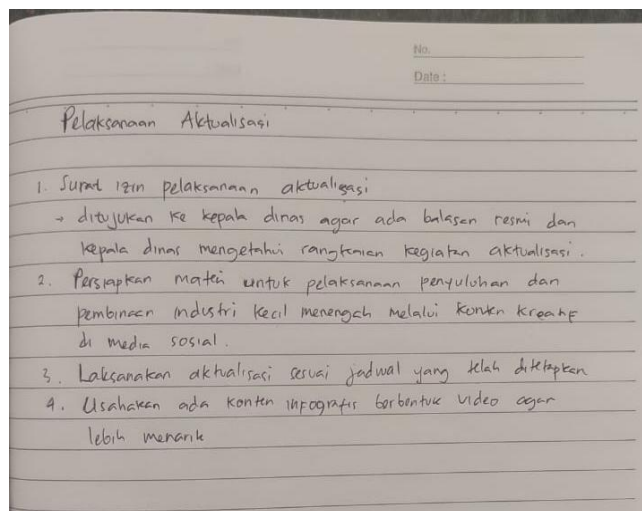 No.
Date :
Pelaksanaan Aktualisasi
1. Surat izin pelaksanaan aktualisasi
→ ditujukan ke kepala dinas agar ada balasan resmi dan
kepala dinas mengetahui rangkaian kegiatan aktualisasi.
2. Persiapkan materi untuk pelaksanaan penyuluhan dan
pembinaan industri kecil menengah melalui konten kreatif
di media sosial.
3. Laksanakan aktualisasi sesuai jadwal yang telah ditetapkan
4. Usahakan ada konten infografis berbentuk video agar
lebih menarik